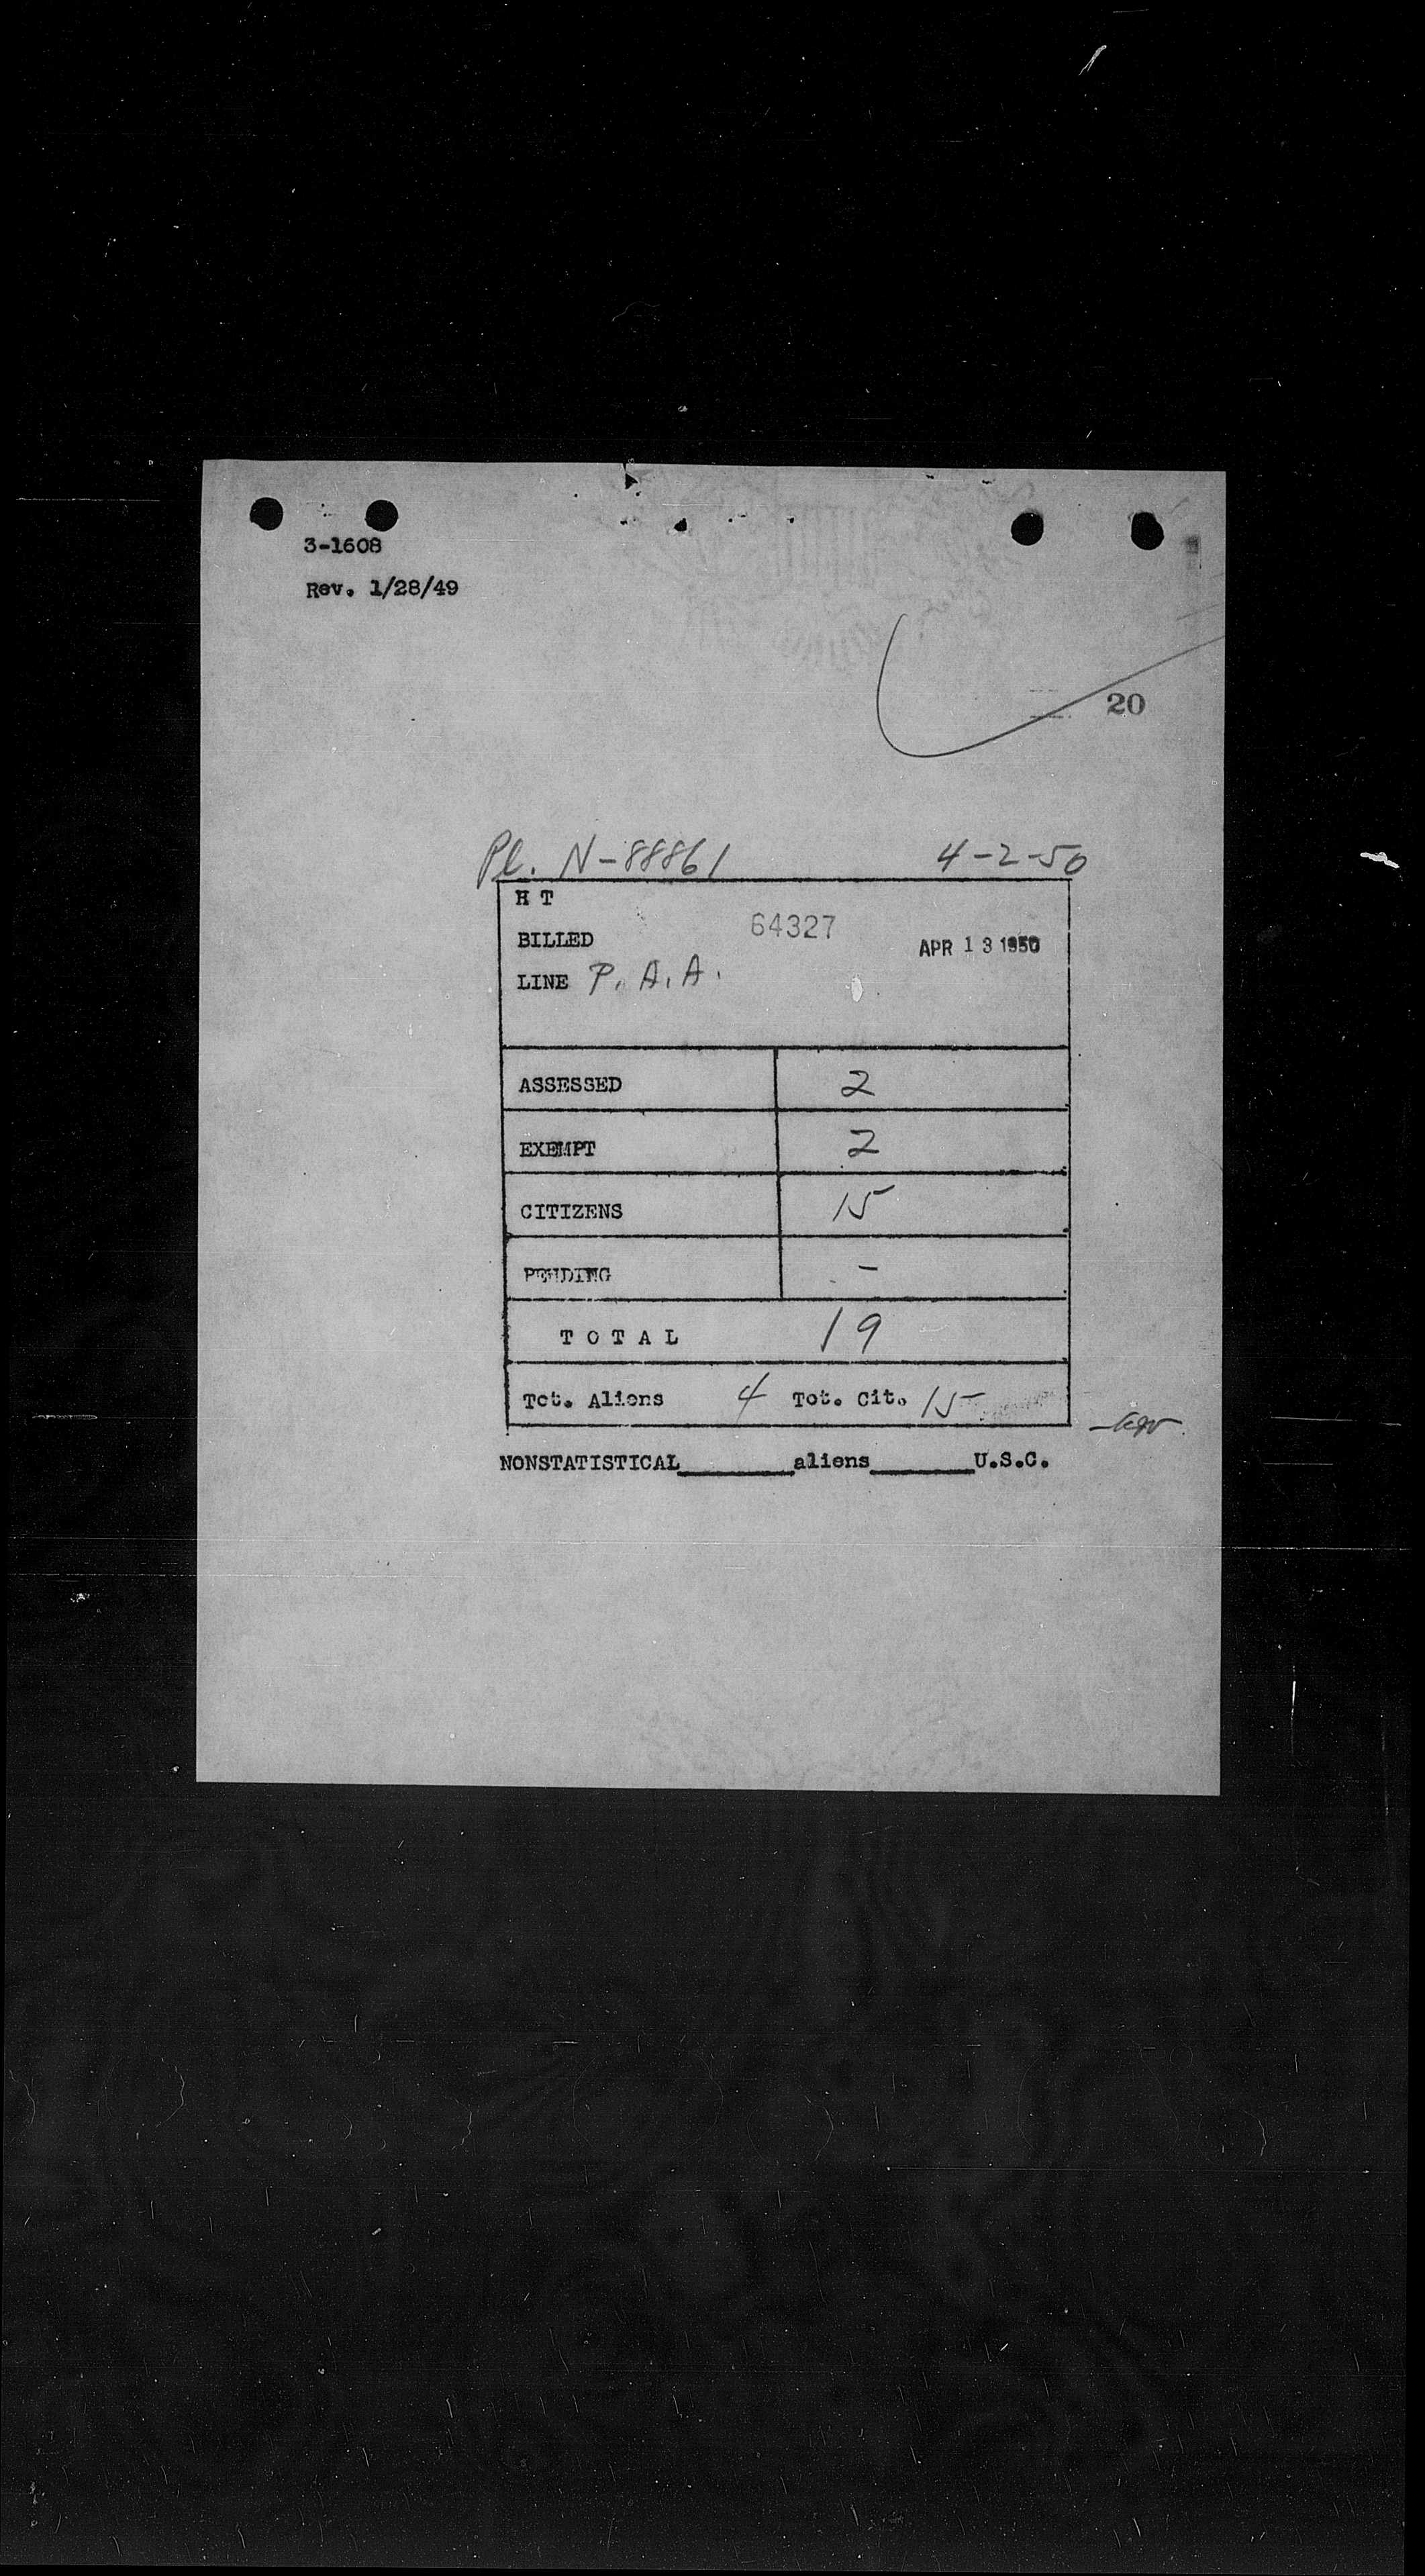 3-1608
Rev. 1/28/49
20
Pl. N-88861 4-2-50
H T
64327
BILLED APR 13 1950
LINE P. A. A.
ASSESSED 2
EXEMPT 2
CITIZENS 15
PENDING -
T O T A L 19
Tot. Aliens 4 Tot. Cit. 15
NONSTATISTICAL________aliens________U.S.C.